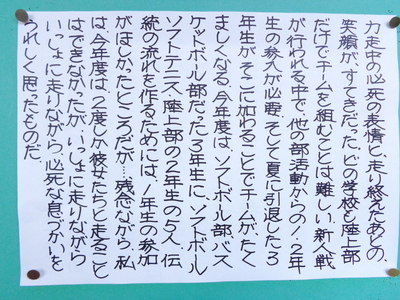 力走中の必死の表情と、走り終えたあとの、
笑顔が、すてきだった。どの学校も陸上部
だけでチームを組むことは難しい。新人戦
が行われる中で、他の部活動からの1・2年
生の参入が必要、そして夏に引退した3
年生が、そこに加わることでチームが、たく
ましくなる。今年度は、ソフトボール部、バス
ケットボール部だった3年生に、ソフトボール
ソフトテニス、陸上部の2年生の5人、伝
統の流れを作るためには、1年生の参加
がほしかったところだが…残念ながら、私
は、今年度は、2度しか彼女たちと走ること
はできなかったが、いっしょに走りながら
いっしょに走りながら、必死な息づかいを
うれしく思ったものだ。